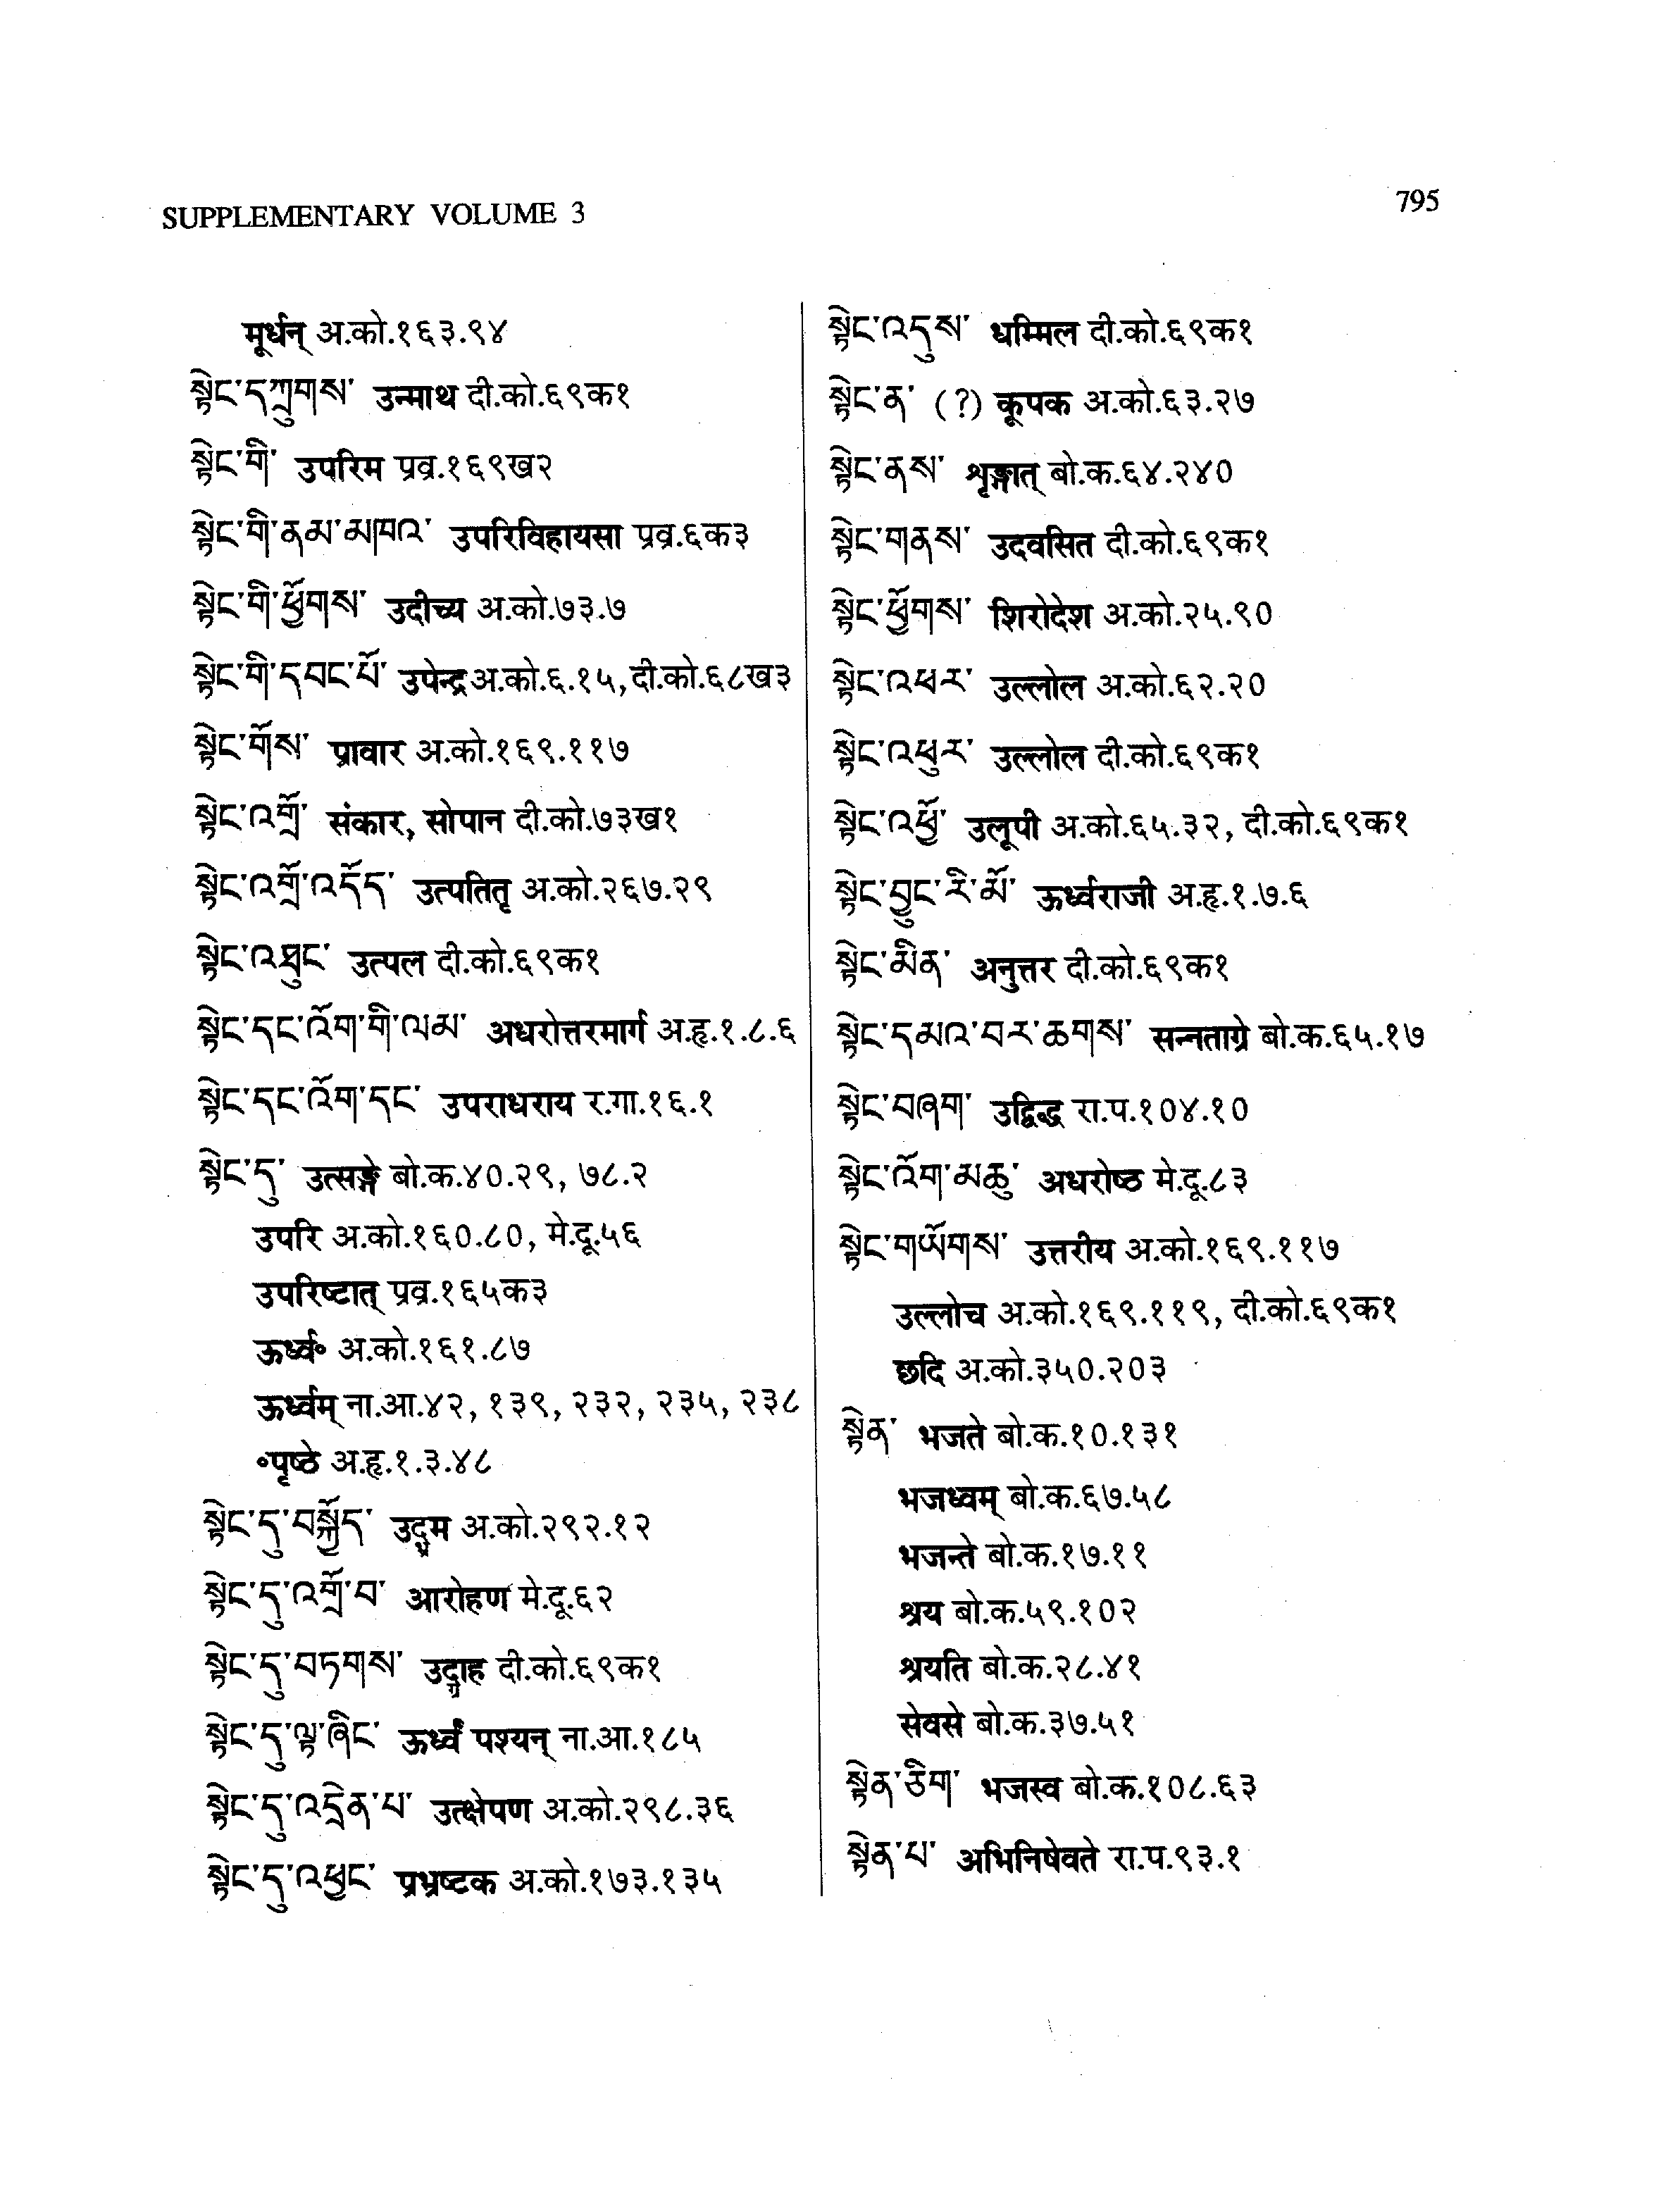 SUPPLEMENTARY VOLUME 3
795
मूर्धन् अ.को.१६३.९४
སྟེང་དཀྲུགས་ उन्माथ दी.को.६९क१
སྟེང་གི་ उपरिम प्रव्र.१६९ख२
སྟེང་གི་ནམ་མཁའ་ उपरिविहायसा प्रव्र.६क३
སྟེང་གི་ཕྱོགས་ उदीच्य अ.को.७३.७
སྟེང་གི་དབང་པོ་ उपेन्द्र अ.को.६.१५, दी.को.६८ख३
སྟེང་གོས་ प्रावार अ.को.१६९.११७
སྟེང་འགྲོ་ संकार, सोपान दी.को.७३ख१
སྟེང་འགྲོ་འདོད་ उत्पतितृ अ.को.२६७.२९
སྟེང་འཐུང་ उत्पल दी.को.६९क१
སྟེང་དང་འོག་གི་ལམ་ अधरोत्तरमार्ग अ.हृ.१.८.६
སྟེང་དང་འོག་དང་ उपराधराय र.गा.१६.१
སྟེང་དུ་ उत्सङ्गे बो.क.४०.२९, ७८.२
उपरि अ.को.१६०.८०, मे.दू.५६
उपरिष्टात् प्रव्र.१६५क३
ऊर्ध्व॰ अ.को.१६१.८७
ऊर्ध्वम् ना.आ.४२, १३९, २३२, २३५, २३८
॰पृष्ठे अ.हृ.१.३.४८
སྟེང་དུ་བསྐྱོད་ उद्भ्रम अ.को.२९२.१२
སྟེང་དུ་འགྲོ་བ་ आरोहण मे.दू.६२
སྟེང་དུ་བཏགས་ उद्ग्राह दी.को.६९क१
སྟེང་དུ་ལྟ་ཞིང་ ऊर्ध्वं पश्यन् ना.आ.१८५
སྟེང་དུ་འདྲེན་པ་ उत्क्षेपण अ.को.२९८.३६
སྟེང་དུ་འཕྱང་ प्रभ्रष्टक अ.को.१७३.१३५
སྟེང་འདུས་ धम्मिल दी.को.६९क१
སྟེང་ན་ (?) कूपक अ.को.६३.२७
སྟེང་ནས་ शृङ्गात् बो.क.६४.२४०
སྟེང་གནས་ उदवसित दी.को.६९क१
སྟེང་ཕྱོགས་ शिरोदेश अ.को.२५.९०
སྟེང་འཕར་ उल्लोल अ.को.६२.२०
སྟེང་འཕུར་ उल्लोल दी.को.६९क१
སྟེང་འཕྱོ་ उलूपी अ.को.६५.३२, दी.को.६९क१
སྟེང་བྱུང་རི་མོ་ ऊर्ध्वराजी अ.हृ.१.७.६
སྟེང་མིན་ अनुत्तर दी.को.६९क१
སྟེང་དམའ་བར་ཆགས་ सन्नताग्रे बो.क.६५.१७
སྟེང་བཞག་ उद्विद्ध रा.प.१०४.१०
སྟེང་འོག་མཆུ་ अधरोष्ठ मे.दू.८३
སྟེང་གཡོགས་ उत्तरीय अ.को.१६९.११७
उल्लोच अ.को.१६९.११९, दी.को.६९क१
छदि अ.को.३५०.२०३
སྟེན་ भजते बो.क.१०.१३१
भजध्वम् बो.क.६७.५८
भजन्ते बो.क.१७.११
श्रय बो.क.५९.१०२
श्रयति बो.क.२८.४१
सेवसे बो.क.३७.५१
སྟེན་ཅིག་ भजस्व बो.क.१०८.६३
སྟེན་པ་ अभिनिषेवते रा.प.९३.१